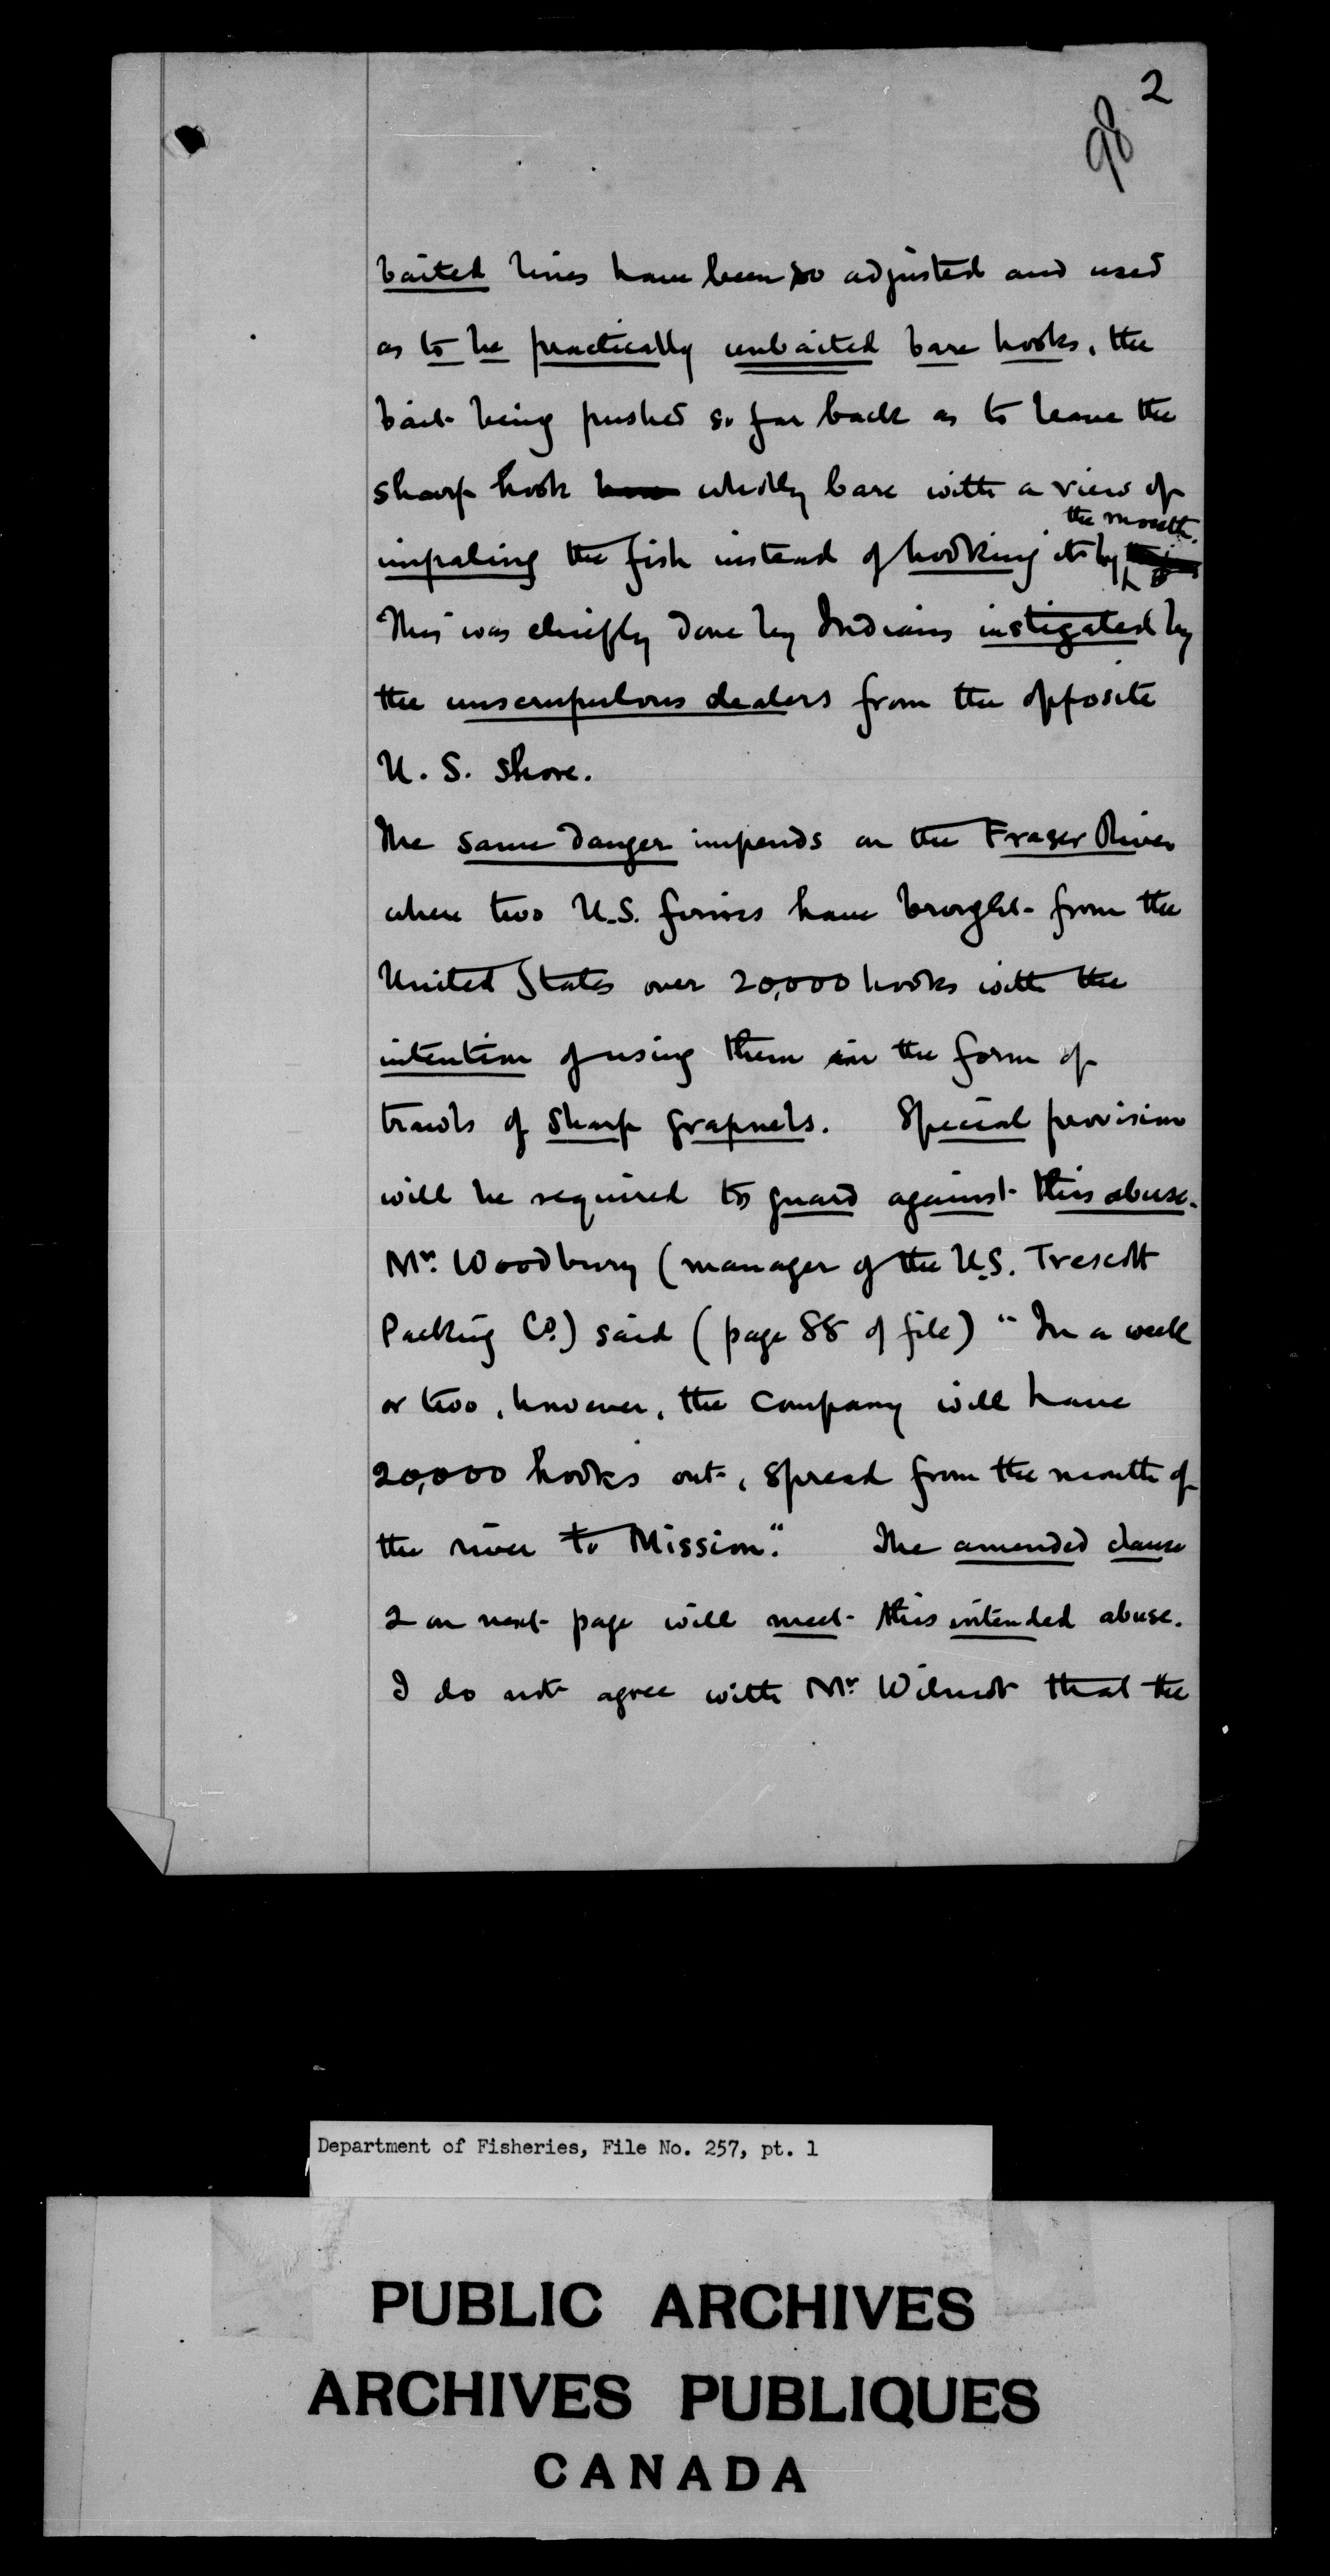 2
98
baited lines have been so adjusted and used
as to be practically unbaited bare hooks, the
bait being pushed so far back as to leave the
sharp hook wholly bare with a view of
the mouth.
impaling the fish instead of hooking it by
This was chiefly done by Indians instigated by
the unscrupulous dealers from the opposite
U. S. shore.
The same danger impends on the Fraser River
where two U.S. firms have brought from the
United States over 20,000 hooks with the
intention of using them in the form of
trawls of sharp grapnels. Special provision
will be required to guard against this abuse.
Mr. Woodbury (manager of the U.S. Trescott
Packing Co.) said (page 88 of file) "In a week
or two, however, the Company will have
20,000 hooks out, spread from the mouth of
the river to Mission." The amended clause
2 on next page will meet this intended abuse.
I do not agree with Mr Wilmot that the
Department of Fisheries, File No. 257, pt. 1
PUBLIC ARCHIVES
ARCHIVES PUBLIQUES
CANADA